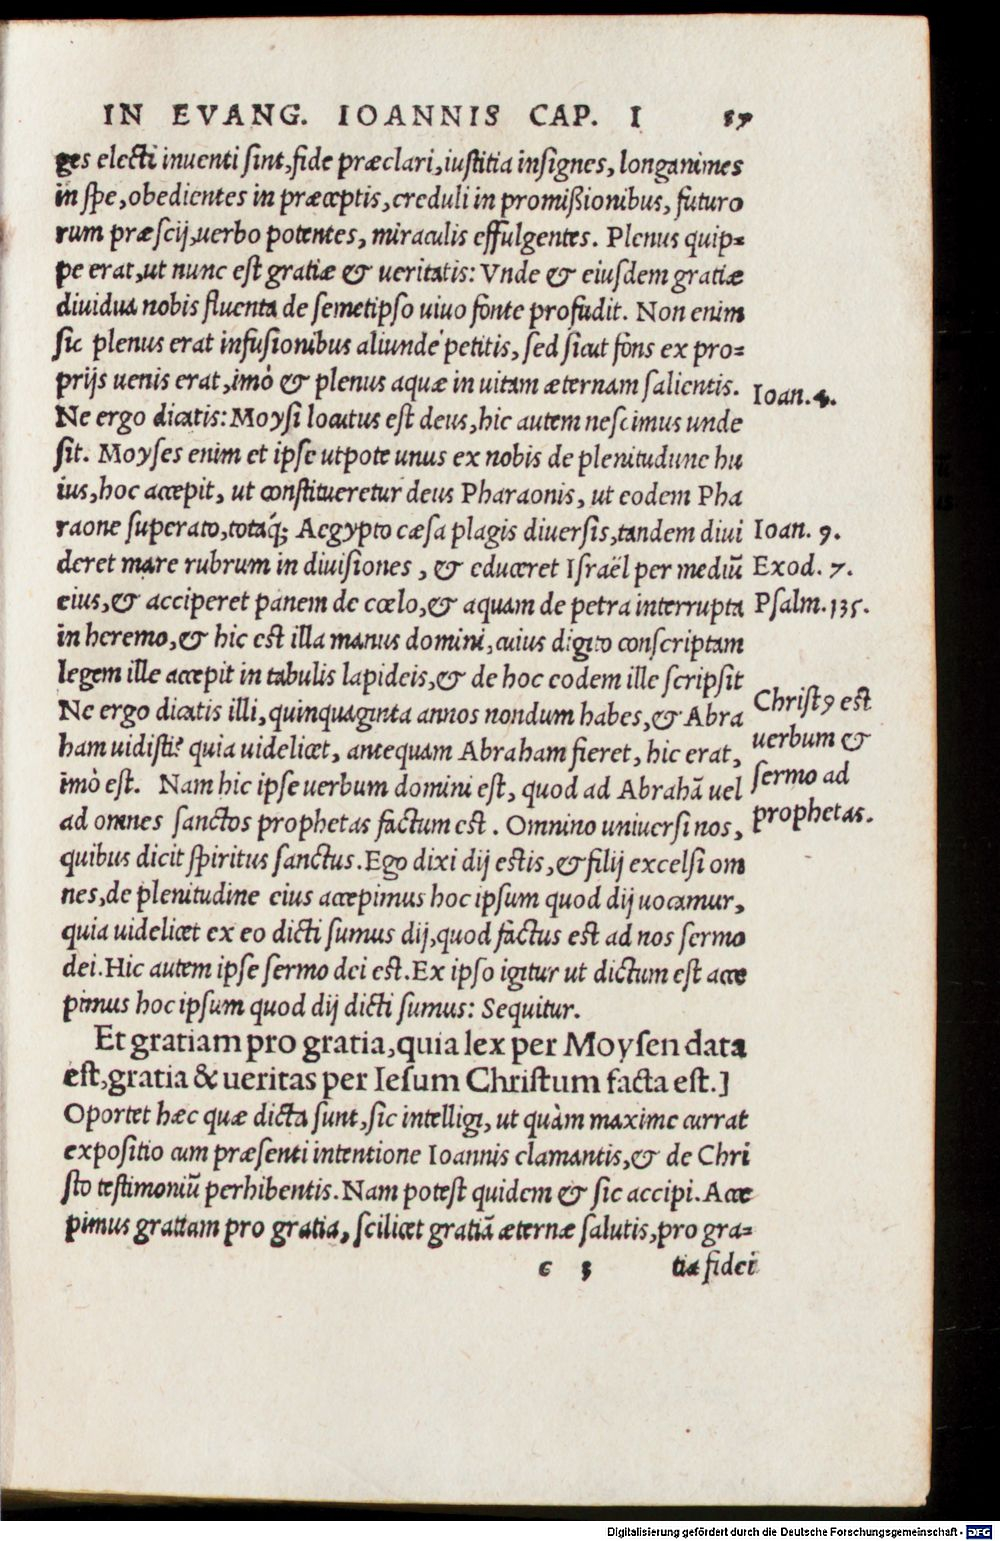 IN EVANG. IOANNIS CAP. I 57
ges electi inuenti sint, fide præclari, iustitia insignes, longanimes
in spe, obedientes in præceptis, creduli in promißionibus, futuro
rum præscij, uerbo potentes, miraculis effulgentes. Plenus quip=
pe erat, ut nunc est gratiæ & ueritatis: Vnde & eiusdem gratiæ
diuidua nobis fluenta de semetipso uiuo fonte profudit. Non enim
sic plenus erat infusionibus aliunde petitis, sed sicut fons ex pro=
prijs uenis erat, imò & plenus aquæ in uitam æternam salientis.
Ioan. 4.
Ne ergo dicatis: Moysi locutus est deus, hic autem nescimus unde
sit. Moyses enim et ipse utpote unus ex nobis de plenitudune hu
ius, hoc accepit, ut constitueretur deus Pharaonis, ut eodem Pha
raone superato, totaq́; Aegypto cæsa plagis diuersis, tandem diui
Ioan. 9.
deret mare rubrum in diuisiones, & educeret Israël per mediũ
Exod. 7.
eius, & acciperet panem de cœlo, & aquam de petra interrupta
Psalm. 135.
in heremo, & hic est illa manus domini, cuius digito conscriptam
legem ille accepit in tabulis lapideis, & de hoc eodem ille scripsit
Ne ergo dicatis illi, quinquaginta annos nondum habes, & Abra
ham uidisti? quia uidelicet, antequam Abraham fieret, hic erat,
imò est. Nam hic ipse uerbum domini est, quod ad Abrahã uel
ad omnes sanctos prophetas factum est. Omnino uniuersi nos,
Christꝰ est
uerbum &
sermo ad
prophetas.
quibus dicit spiritus sanctus. Ego dixi dij estis, & filij excelsi om
nes, de plenitudine eius accepimus hoc ipsum quod dij uocamur,
quia uidelicet ex eo dicti sumus dij, quod factus est ad nos sermo
dei. Hic autem ipse sermo dei est. Ex ipso igitur ut dictum est acce
pimus hoc ipsum quod dij dicti sumus: Sequitur.
Et gratiam pro gratia, quia lex per Moysen data
est, gratia & ueritas per Iesum Christum facta est.]
Oportet hæc quæ dicta sunt, sic intelligi, ut quàm maxime currat
expositio cum præsenti intentione Ioannis clamantis, & de Chri
sto testimoniũ perhibentis. Nam potest quidem & sic accipi. Acce
pimus gratiam pro gratia, scilicet gratiã æternæ salutis, pro gra=
e 5 tiæ fidei
Digitalisierung gefördert durch die Deutsche Forschungsgemeinschaft - DFG